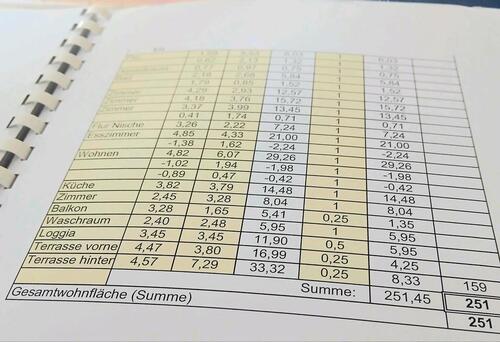 2,18 2,68 5,84 1 5,84
1,79 0,85 1,52 1 1,52
4,29 2,93 12,57 1 12,57
4,18 3,76 15,72 1 15,72
Zimmer 3,37 3,99 13,45 1 13,45
0,41 1,74 0,71 1 0,71
Flur Nische 3,26 2,22 7,24 1 7,24
Esszimmer 4,85 4,33 21,00 1 21,00
-1,38 1,62 -2,24 1 -2,24
Wohnen 4,82 6,07 29,26 1 29,26
-1,02 1,94 -1,98 1 -1,98
-0,89 0,47 -0,42 1 -0,42
Küche 3,82 3,79 14,48 1 14,48
Zimmer 2,45 3,28 8,04 1 8,04
Balkon 3,28 1,65 5,41 0,25 1,35
Waschraum 2,40 2,48 5,95 1 5,95
Loggia 3,45 3,45 11,90 0,5 5,95
Terrasse vorne 4,47 3,80 16,99 0,25 4,25
Terrasse hinter 4,57 7,29 33,32 0,25 8,33 159
Summe: 251,45 251
Gesamtwohnfläche (Summe) 251